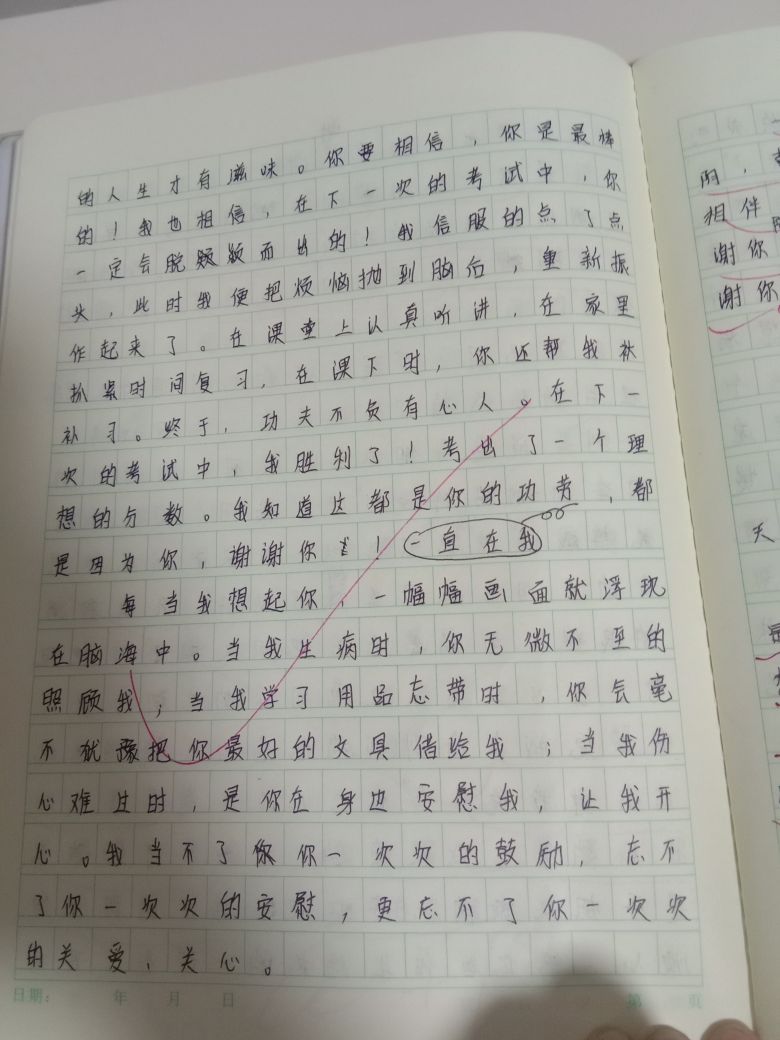 的人生才有滋味。你要相信，你是最棒
的！我也相信，在下一次的考试中，你
一定会脱颖而出的！我信服的点了点
头，此时我便把烦恼抛到脑后，重新振
作起来了。在课堂上认真听讲，在家里
抓紧时间复习，在课下时，你还帮我补
补习。终于，功夫不负有心人。在下一
次的考试中，我胜利了！考出了一个理
想的分数。我知道这都是你的功劳，都
是因为你，谢谢你！一直在我
每当我想起你，一幅幅画面就浮现
在脑海中。当我生病时，你无微不至的
照顾我；当我学习用品忘带时，你会毫
不犹豫把你最好的文具借给我；当我伤
心难过时，是你在身边安慰我，让我开
心。我当不了你你一次次的鼓励，忘不
了你一次次的安慰，更忘不了你一次次
的关爱、关心。
日期： 年 月 日 第 页
阴，
相伴
谢你
谢你
天